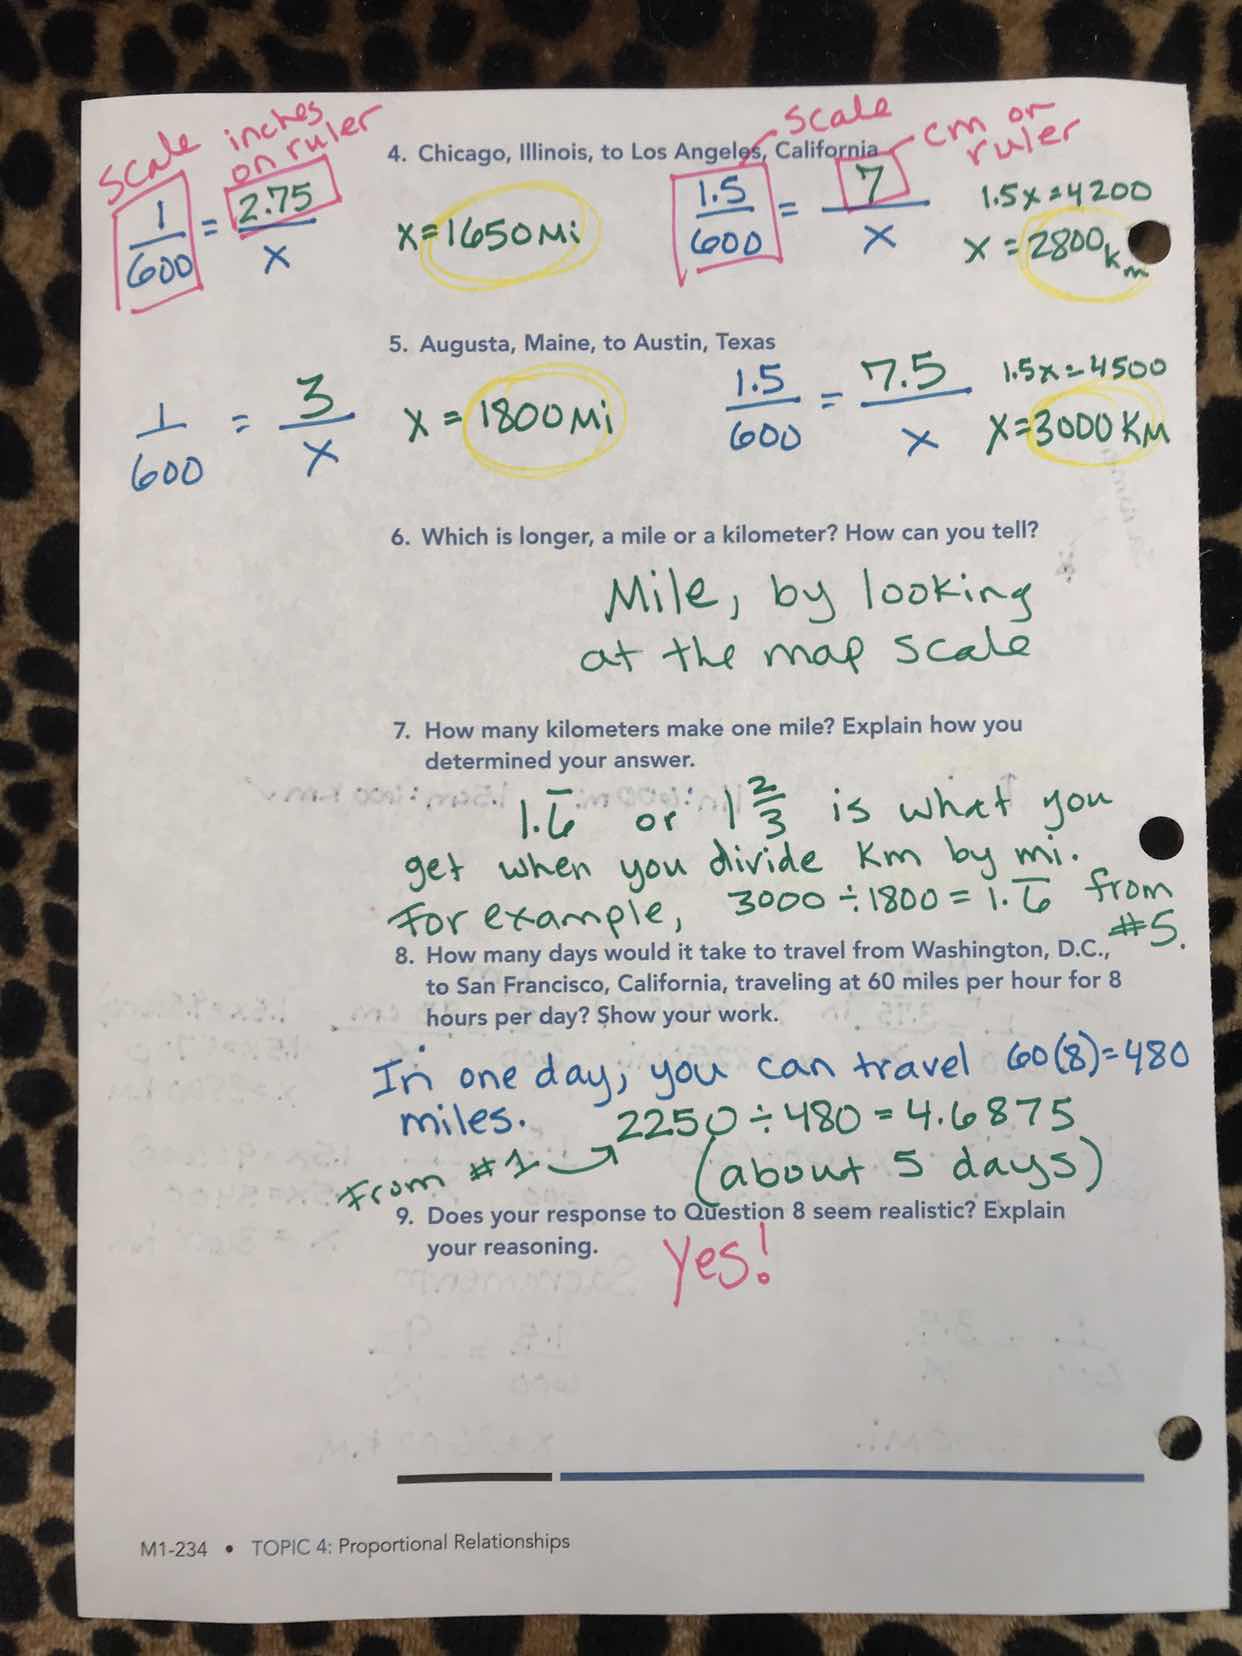 scale inches on ruler
scale
cm on ruler
4. Chicago, Illinois, to Los Angeles, California
1/600 = 2.75/x x=1650Mi 1.5/600 = 7/x 1.5x=4200
x = 2800km
5. Augusta, Maine, to Austin, Texas
1/600 = 3/x x = 1800Mi 1.5/600 = 7.5/x 1.5x=4500
x=3000KM
6. Which is longer, a mile or a kilometer? How can you tell?
Mile, by looking
at the map scale
7. How many kilometers make one mile? Explain how you
determined your answer.
1.6̅ or 1 2/3 is what you
get when you divide Km by mi.
For example, 3000÷1800=1.6̅ from
#5.
8. How many days would it take to travel from Washington, D.C.,
to San Francisco, California, traveling at 60 miles per hour for 8
hours per day? Show your work.
In one day, you can travel 60(8)=480
miles. 2250÷480=4.6875
From #1 (about 5 days)
9. Does your response to Question 8 seem realistic? Explain
your reasoning. Yes!
M1-234 • TOPIC 4: Proportional Relationships